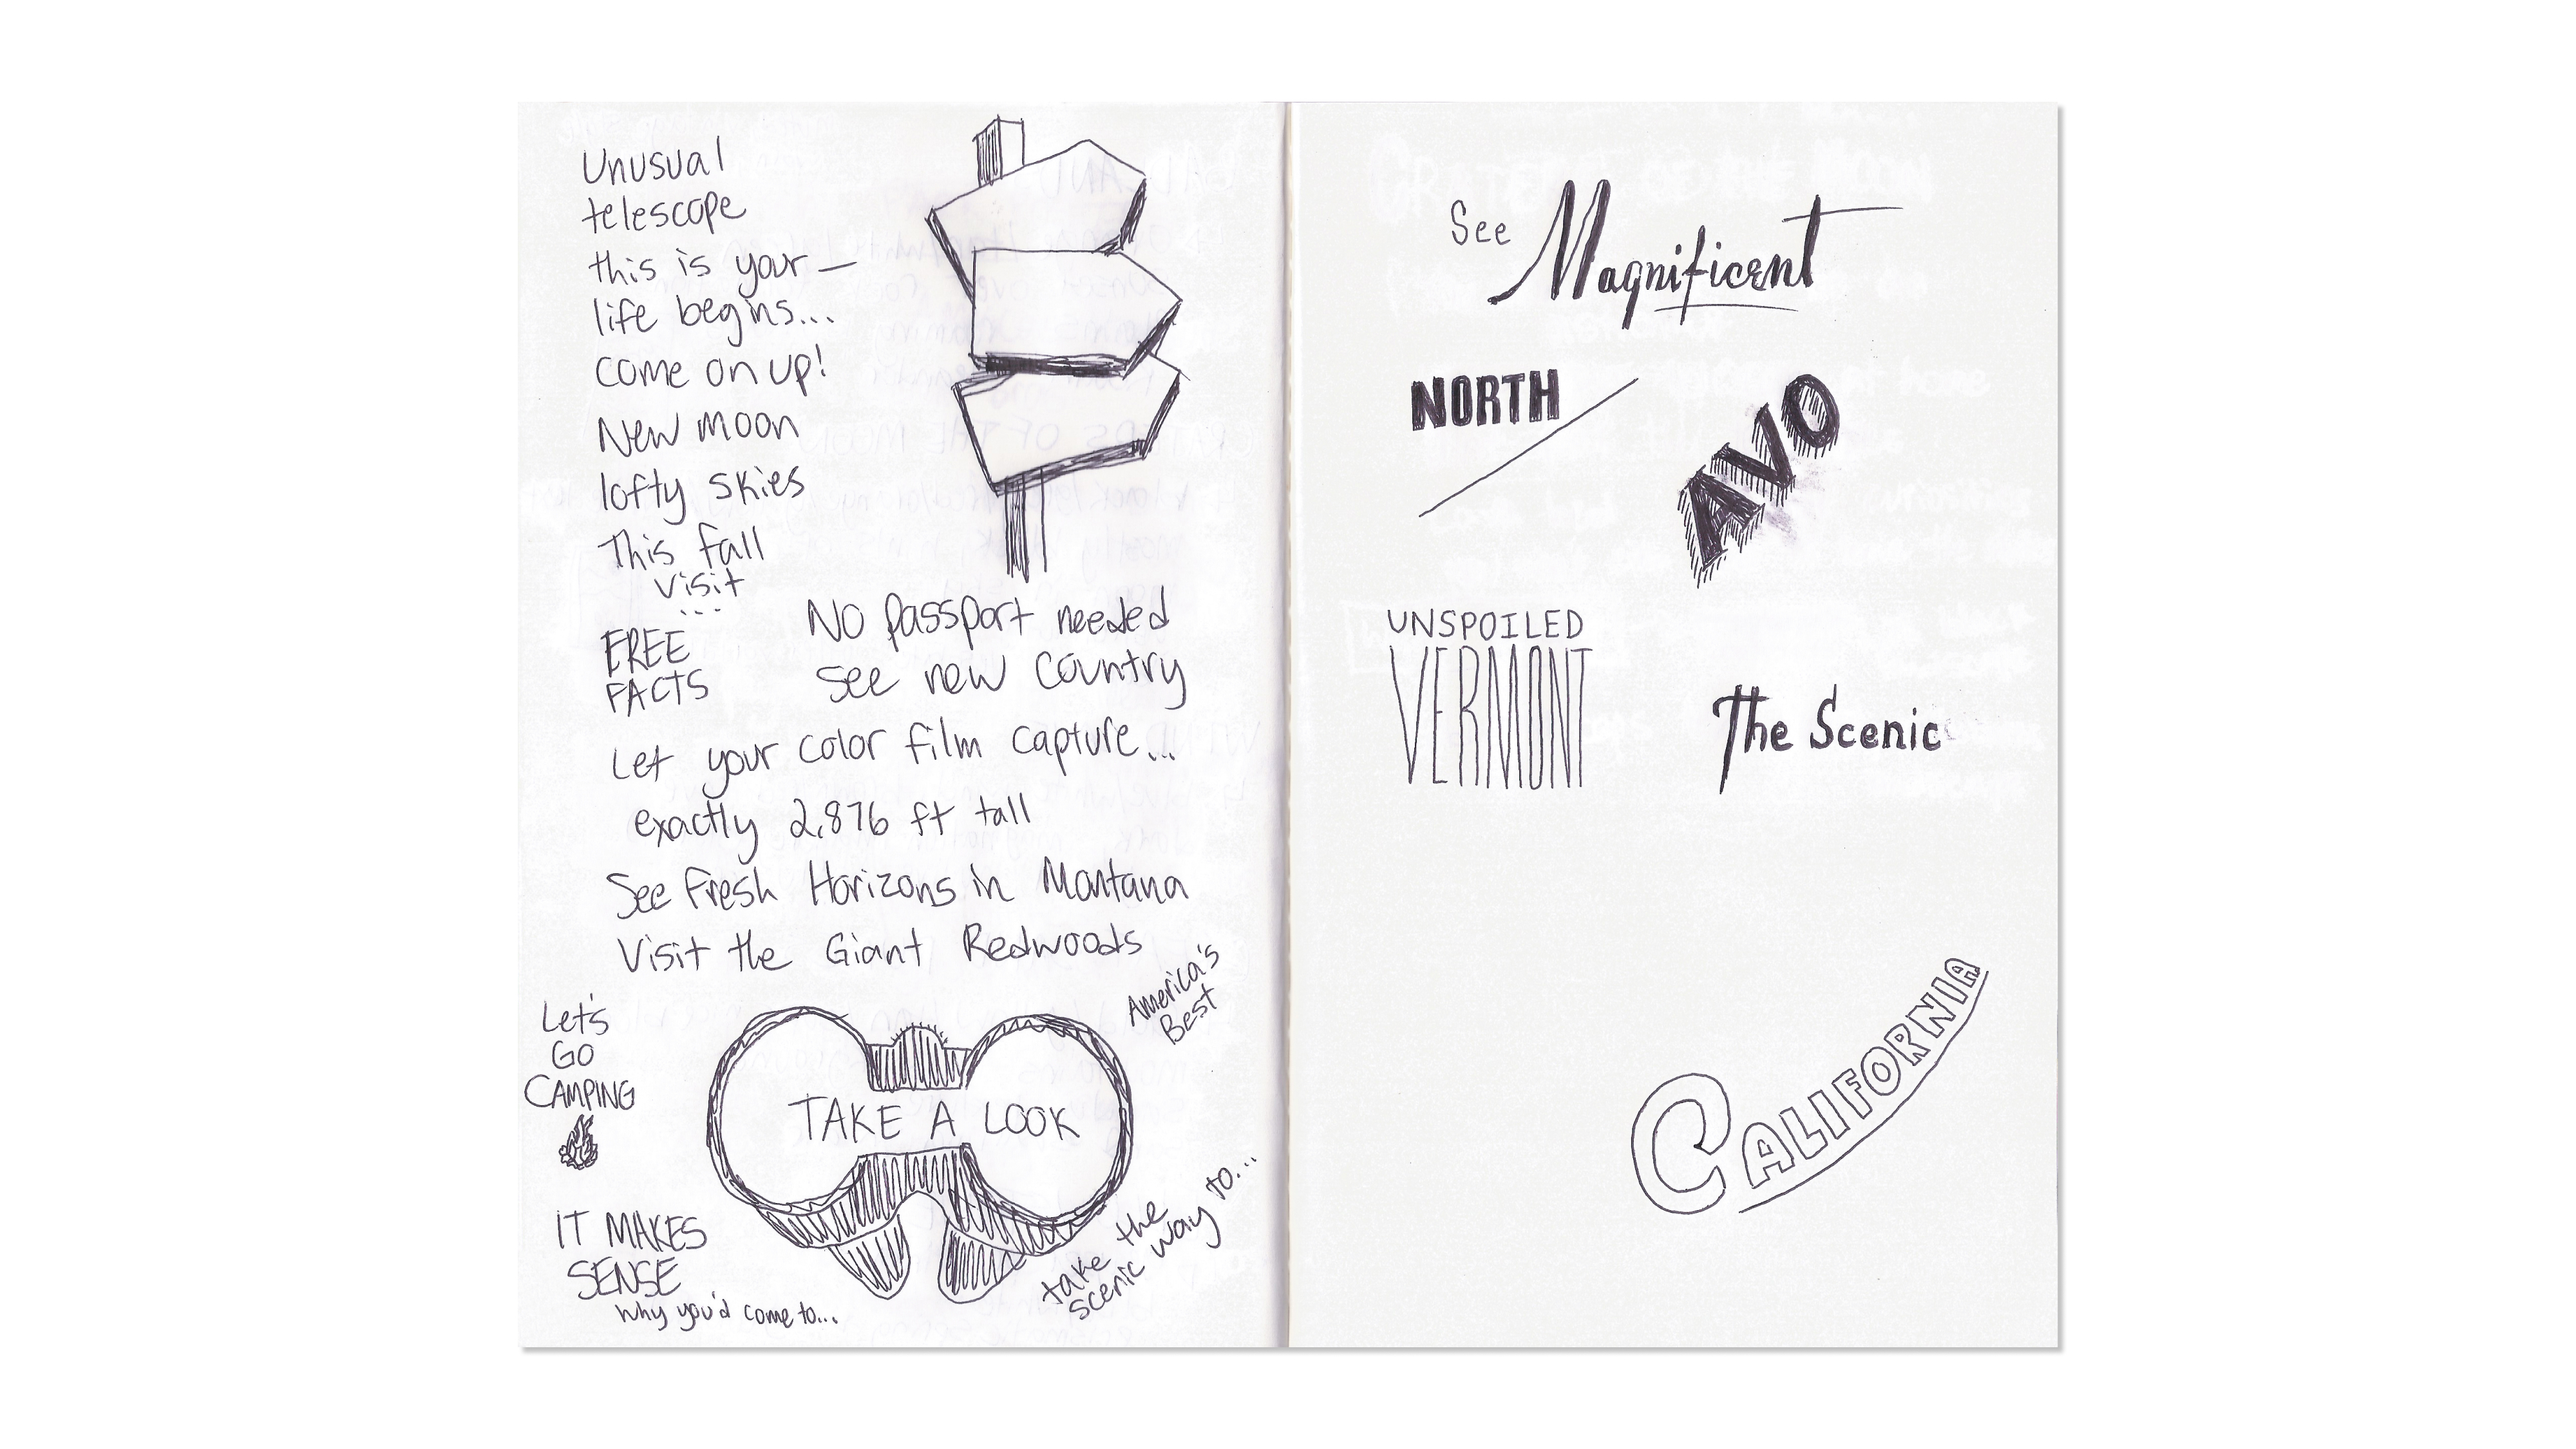 Unusual
telescope
this is your —
life begins...
come on up!
New moon
lofty skies
This fall
visit
...
FREE
FACTS
No passport needed
see new country
Let your color film capture...
exactly 2,876 ft tall
See Fresh Horizons in Montana
Visit the Giant Redwoods
America's
Best
Let's
GO
CAMPING
TAKE A LOOK
IT MAKES
SENSE
why you'd come to...
take the
scenic way to...
See Magnificent
NORTH
AVO
UNSPOILED
VERMONT
The Scenic
CALIFORNIA